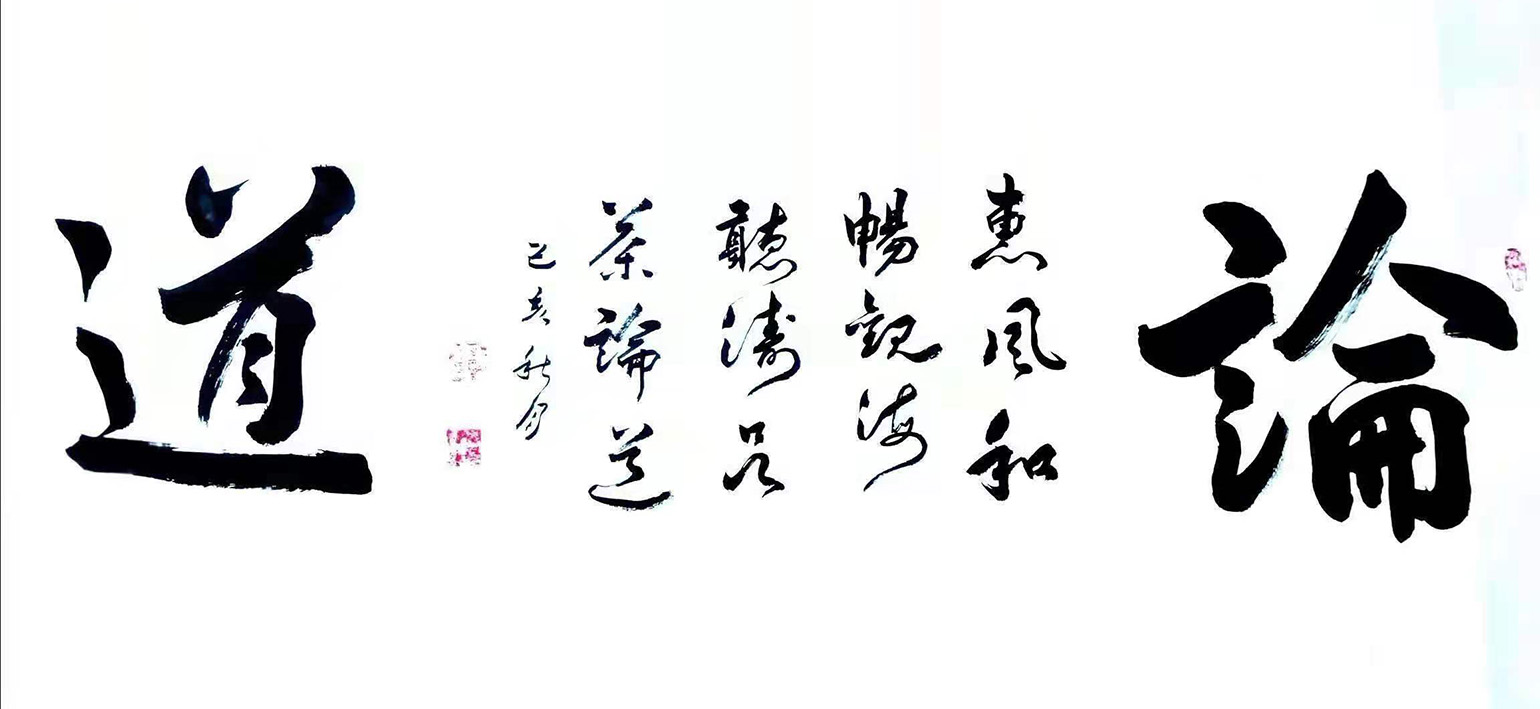 論
惠風和
暢觀海
聽濤品
茶論道
己亥秋月
道